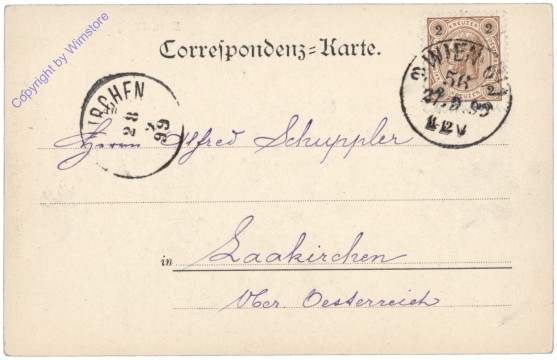 Copyright by Wimstore
Correspondenz=Karte.
2 KREUZER 2
WIEN
2
56
27.9.99
4-5V
IRCHEN
28
9
99
Herrn Alfred Schuppler
in Laakirchen
Ober Oesterreich